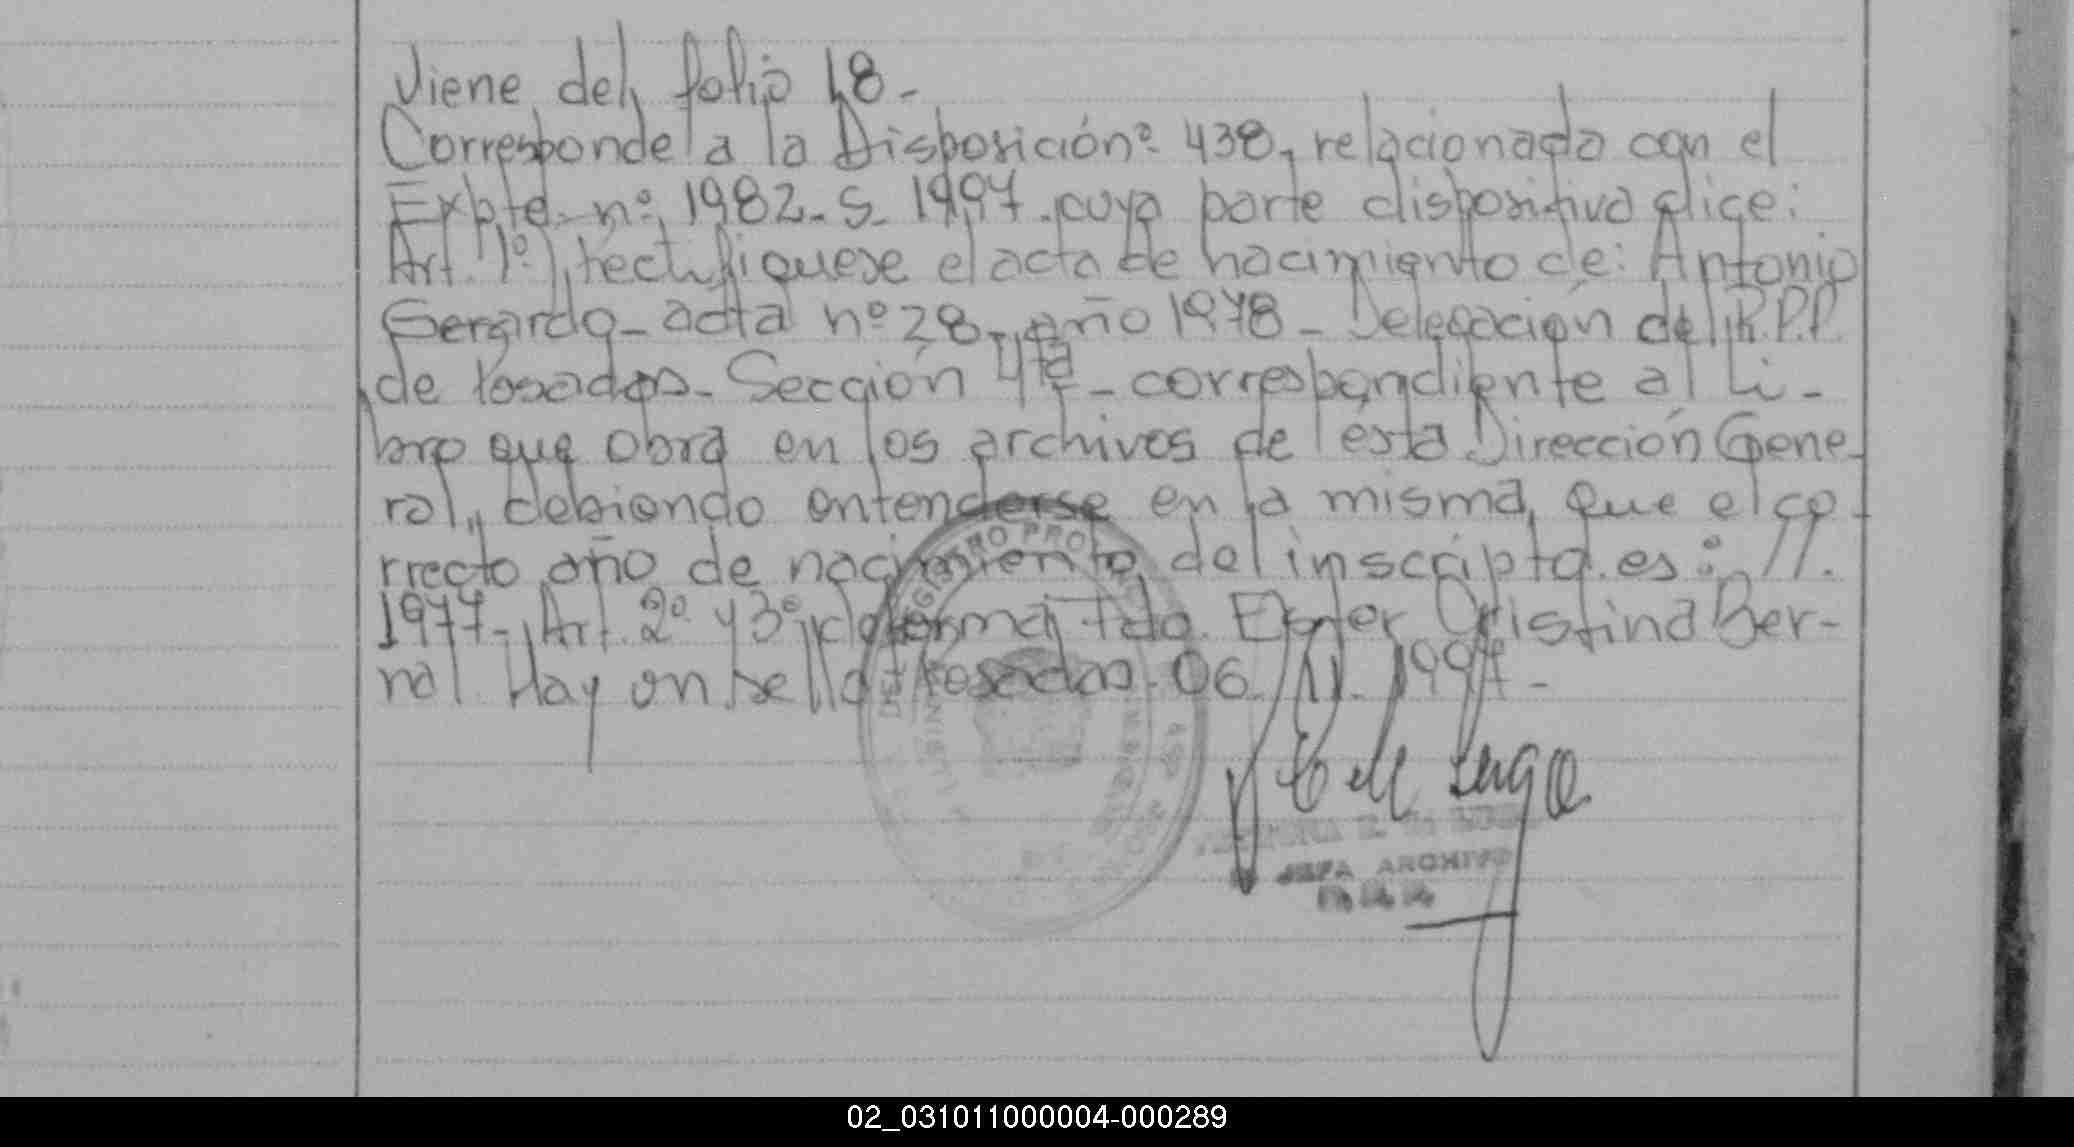 Viene del folio 18-
Corresponde a la Disposición nº 438, relacionada con el
Expte. nº 1982- S- 1997. cuya parte dispositiva dice:
Art. 1º), rectifiquese el acta de nacimiento de: Antonio
Gerardo- acta nº 28- año 1978- Delegación del R.P.P.
de Posadas- Sección 4ta- correspondiente al Li-
bro que obra en los archivos de esta Dirección Gene-
ral, debiendo entenderse en la misma, que el co-
rrecto año de nacimiento del inscripta. es: //.
1977-, Art. 2º y 3º) de forma. Fdo. Ester Cristina Ber-
nal. Hay un sello. Posadas. 06. 11. 1997-
REGISTRO PRO
Lugo
JEFA ARCHIVO
02_031011000004-000289